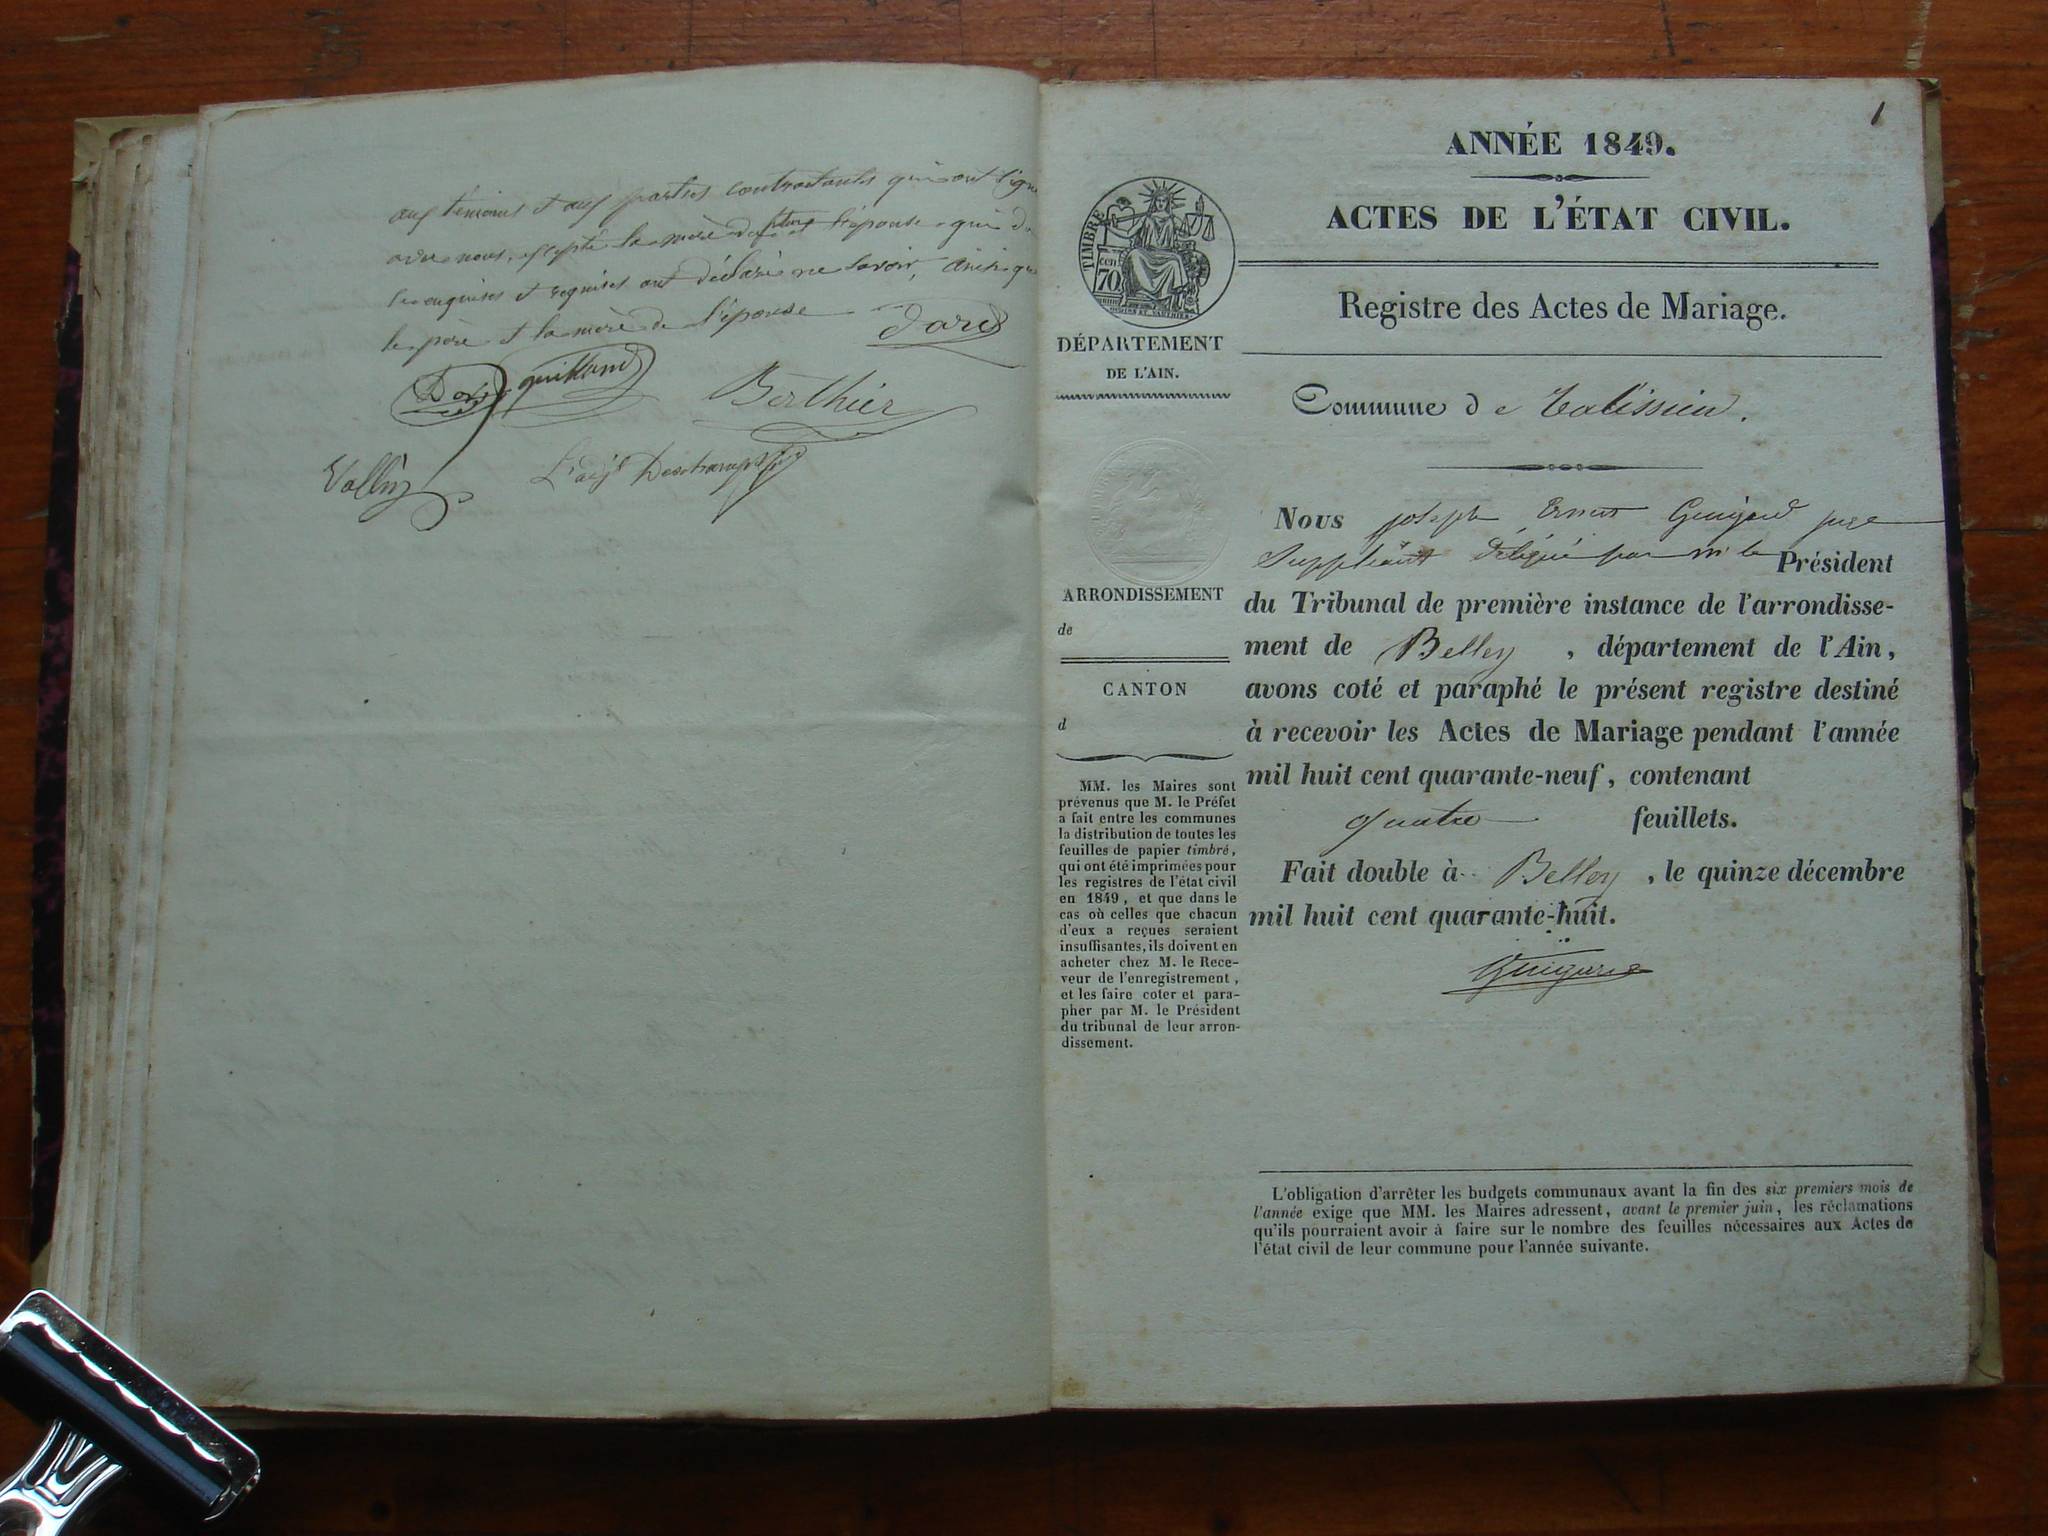 aux témoins et aux parties contractantes qui ont signé
avec nous, excepté la mère de l'épouse qui de
ce enquises et requises ont déclaré ne savoir, ainsi que
le père et la mère de l'épouse
Berthier
Vallin
L'adjt Deschamps
1
ANNÉE 1849.
ACTES DE L'ÉTAT CIVIL.
Registre des Actes de Mariage.
TIMBRE
cen
70
DÉPARTEMENT
DE L'AIN.
ARRONDISSEMENT
de
CANTON
d
MM. les Maires sont
prévenus que M. le Préfet
a fait entre les communes
la distribution de toutes les
feuilles de papier timbré,
qui ont été imprimées pour
les registres de l'état civil
en 1849, et que dans le
cas où celles que chacun
d'eux a reçues seraient
insuffisantes, ils doivent en
acheter chez M. le Rece-
veur de l'enregistrement,
et les faire coter et para-
pher par M. le Président
du tribunal de leur arron-
dissement.
Commune de Talissieu.
Nous joseph Ernest Guigard juge
Suppléant délégué par m le Président
du Tribunal de première instance de l'arrondisse-
ment de Belley, département de l'Ain,
avons coté et paraphé le présent registre destiné
à recevoir les Actes de Mariage pendant l'année
mil huit cent quarante-neuf, contenant
quatre feuillets.
Fait double à Belley, le quinze décembre
mil huit cent quarante-huit.
Guigard
L'obligation d'arrêter les budgets communaux avant la fin des six premiers mois de
l'année exige que MM. les Maires adressent, avant le premier juin, les réclamations
qu'ils pourraient avoir à faire sur le nombre des feuilles nécessaires aux Actes de
l'état civil de leur commune pour l'année suivante.